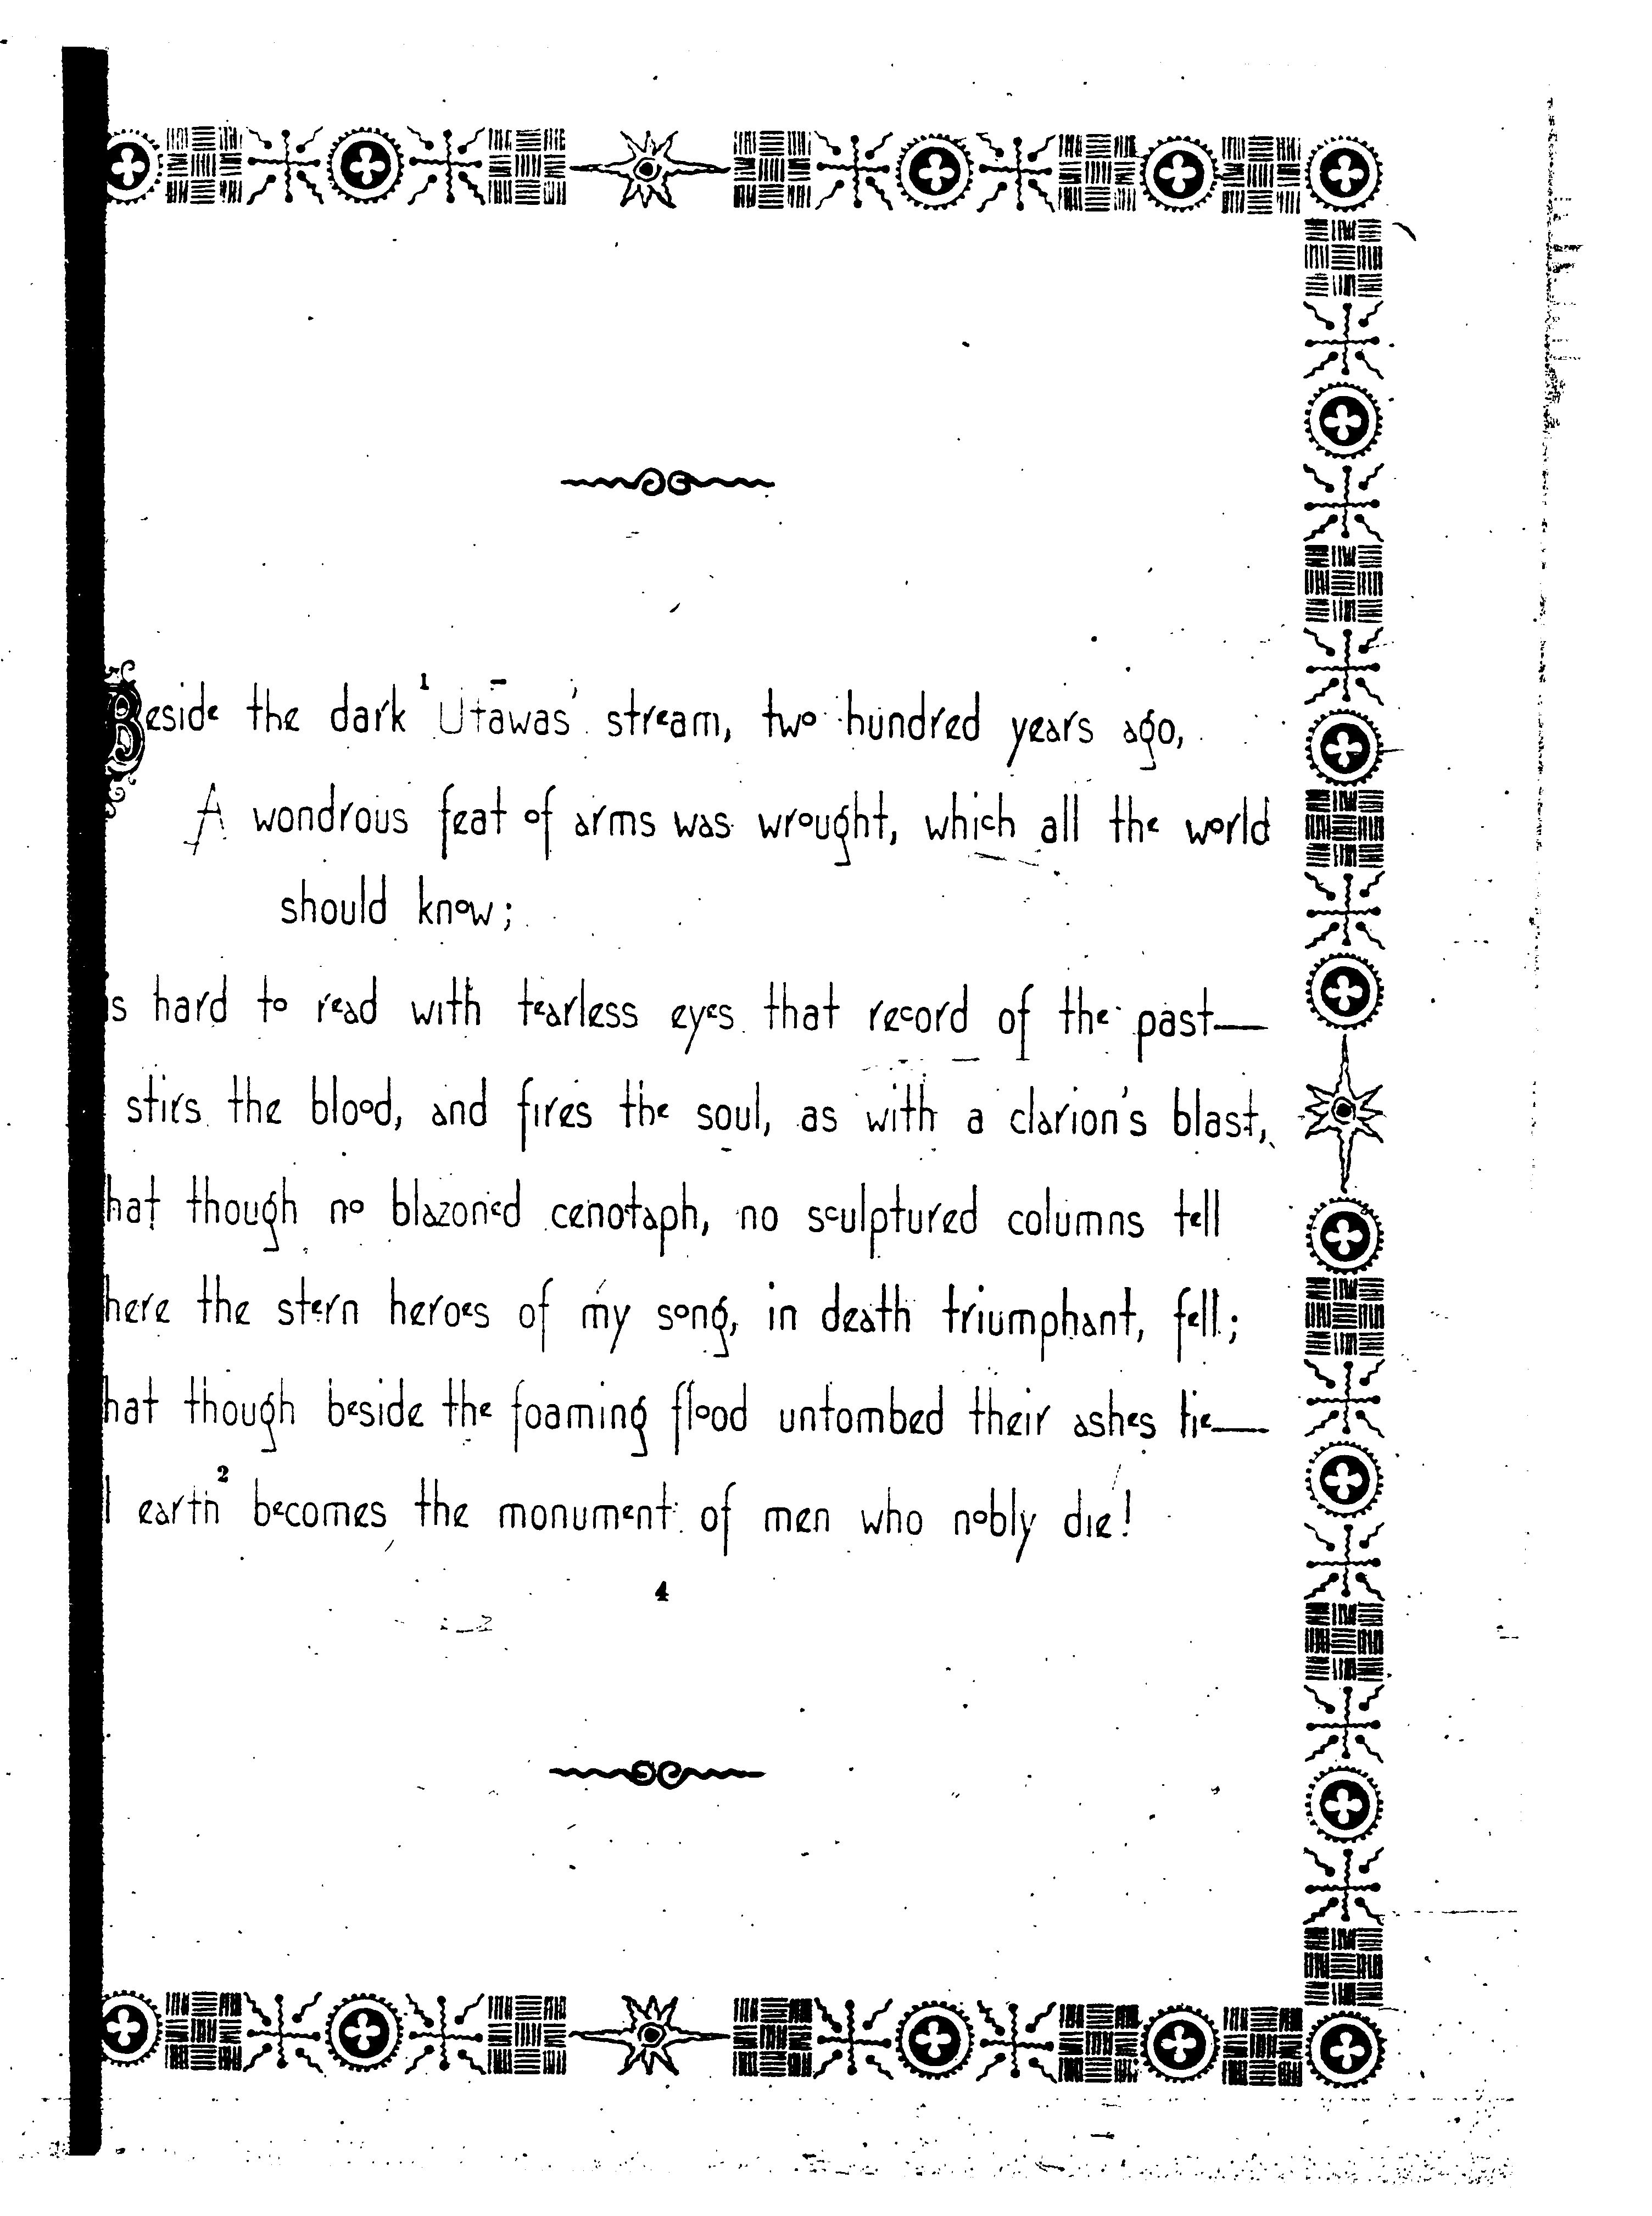 Beside the dark ¹Utāwas' stream, two hundred years ago,
A wondrous feat of arms was wrought, which all the world
should know;
is hard to read with tearless eyes that record of the past—
stirs the blood, and fires the soul, as with a clarion's blast,
hat though no blazoned cenotaph, no sculptured columns tell
here the stern heroes of my song, in death triumphant, fell;
hat though beside the foaming flood untombed their ashes lie—
l earth² becomes the monument of men who nobly die!
4